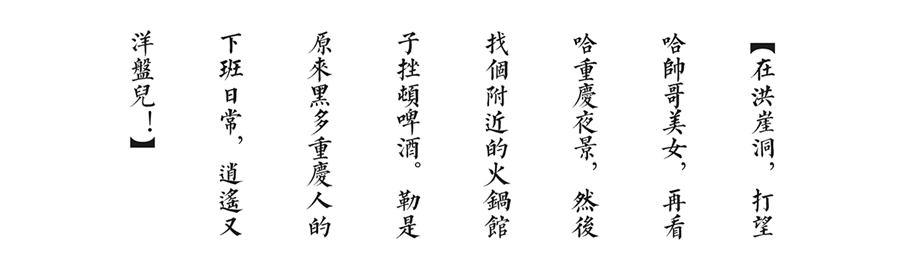 【在洪崖洞，打望
哈帥哥美女，再看
哈重慶夜景，然後
找個附近的火鍋館
子挫頓啤酒。勒是
原來黑多重慶人的
下班日常，逍遙又
洋盤兒！】